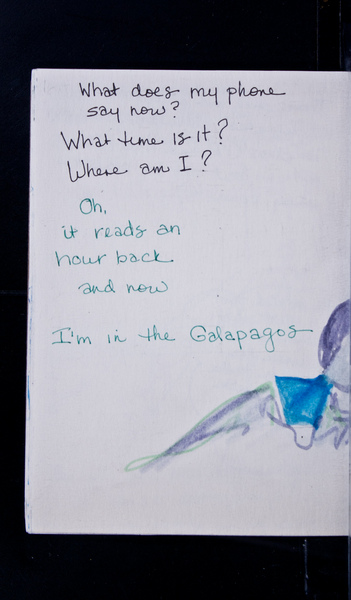 What does my phone
say now?
What time is it?
Where am I?
Oh,
it reads an
hour back
and now
I'm in the Galapagos